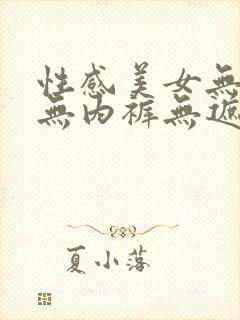 性感美女無
無内裤無遮
夏小落